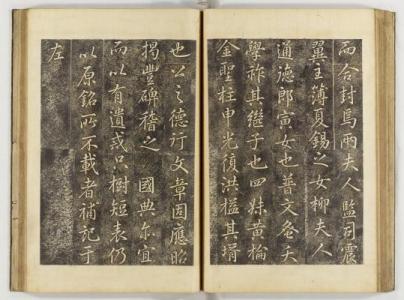 而合封焉兩夫人監司震
翼主簿夏錫之女柳夫人
通德郎寅女也普文參夭
學祚其繼子也四妹黃棆
金聖柱申光復洪檍其壻
也公之德行文章固應昭
揭豐碑稽之 國典亦宜
而以有遺或只樹短表仍
以原銘所不載者補記于
左